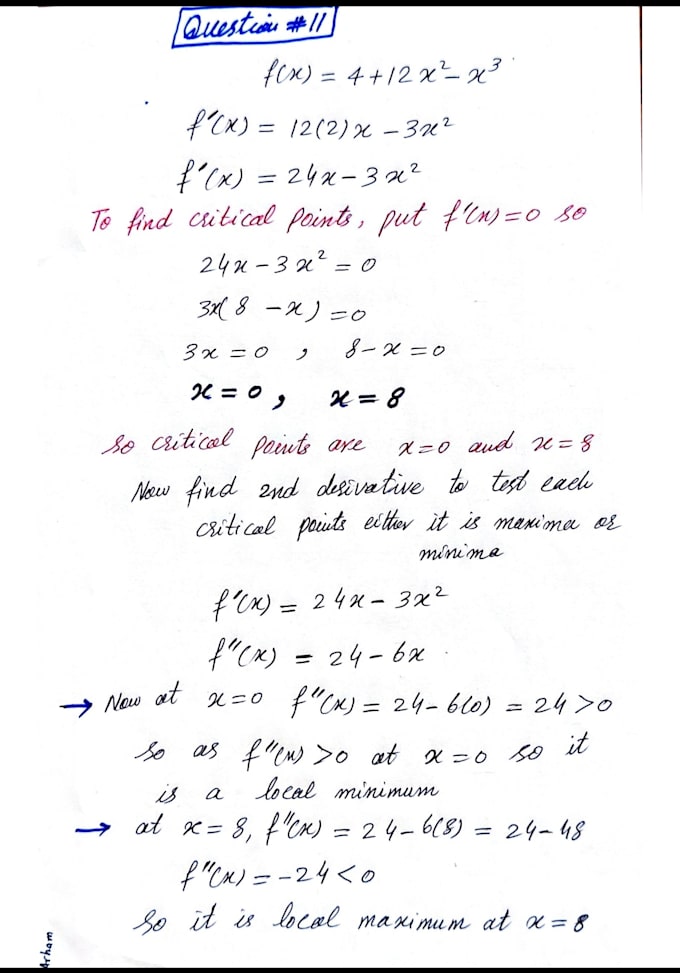 Question #11
f(x) = 4+12x²-x³
f'(x) = 12(2)x - 3x²
f'(x) = 24x - 3x²
To find critical points, put f'(x)=0 so
24x - 3x² = 0
3x(8 - x) = 0
3x = 0 , 8 - x = 0
x = 0 , x = 8
So critical points are x=0 and x=8
Now find 2nd derivative to test each
critical points either it is maxima or
minima
f'(x) = 24x - 3x²
f''(x) = 24 - 6x
→ Now at x=0 f''(x) = 24-6(0) = 24 >0
So as f''(x) >0 at x=0 so it
is a local minimum
→ at x=8, f''(x) = 24-6(8) = 24-48
f''(x) = -24 <0
So it is local maximum at x=8
Arham